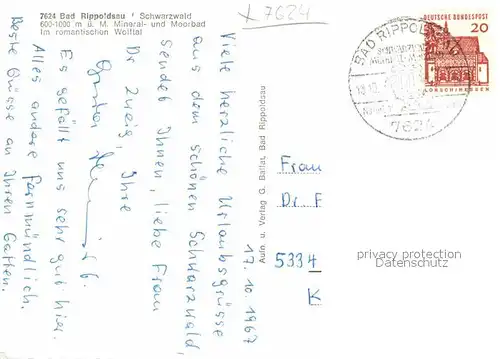 7624 Bad Rippoldsau / Schwarzwald
600-1000 m ü. M. Mineral- und Moorbad
Im romantischen Wolftal
7624
17.10.1967
Viele herzliche Urlaubsgrüsse
aus dem schönen Schwarzwald,
sendet Ihnen, liebe Frau
Dr Zweig, Ihre
Es gefällt uns sehr gut hier.
Alles andere fernmündlich.
Beste Grüsse an Ihren Gatten.
Aufn. u. Verlag G. Ballat, Bad Rippoldsau
BAD RIPPOLDSAU
7624
DEUTSCHE BUNDESPOST
20
LORSCH/HESSEN
Frau
Dr F
5334
K
privacy protection
Datenschutz